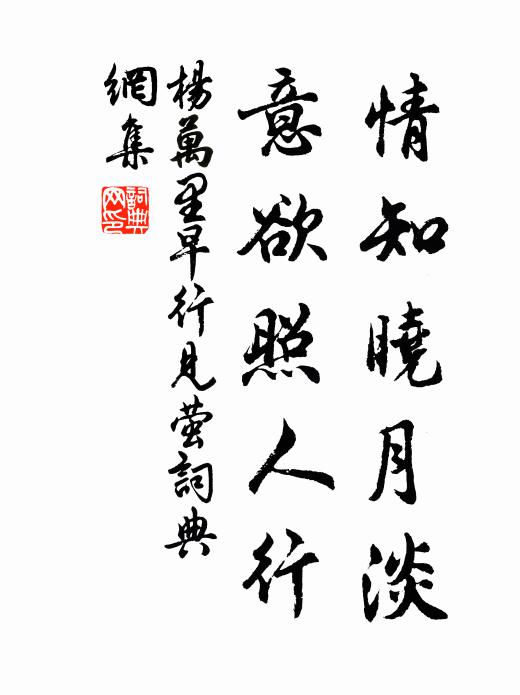 情知曉月淡
意欲照人行
楊萬里早行見萤詞典
網集
詞典
网印